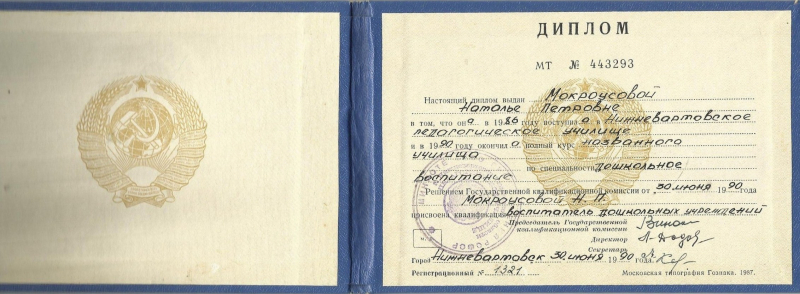 ДИПЛОМ
МТ № 443293
Настоящий диплом выдан Мокроусовой
Наталье Петровне
в том, что она в 1986 году поступила в Нижневартовское
педагогическое училище
и в 1990 году окончила полный курс названного
училища
по специальности дошкольное
воспитание
Решением Государственной квалификационной комиссии от 30 июня 1990 года
Мокроусовой Н. П.
присвоена квалификация воспитатель дошкольных учреждений
Председатель Государственной
квалификационной комиссии
Директор
Секретарь
Город Нижневартовск 30 июня 1990 года.
Регистрационный № 1321
Московская типография Гознака. 1987.